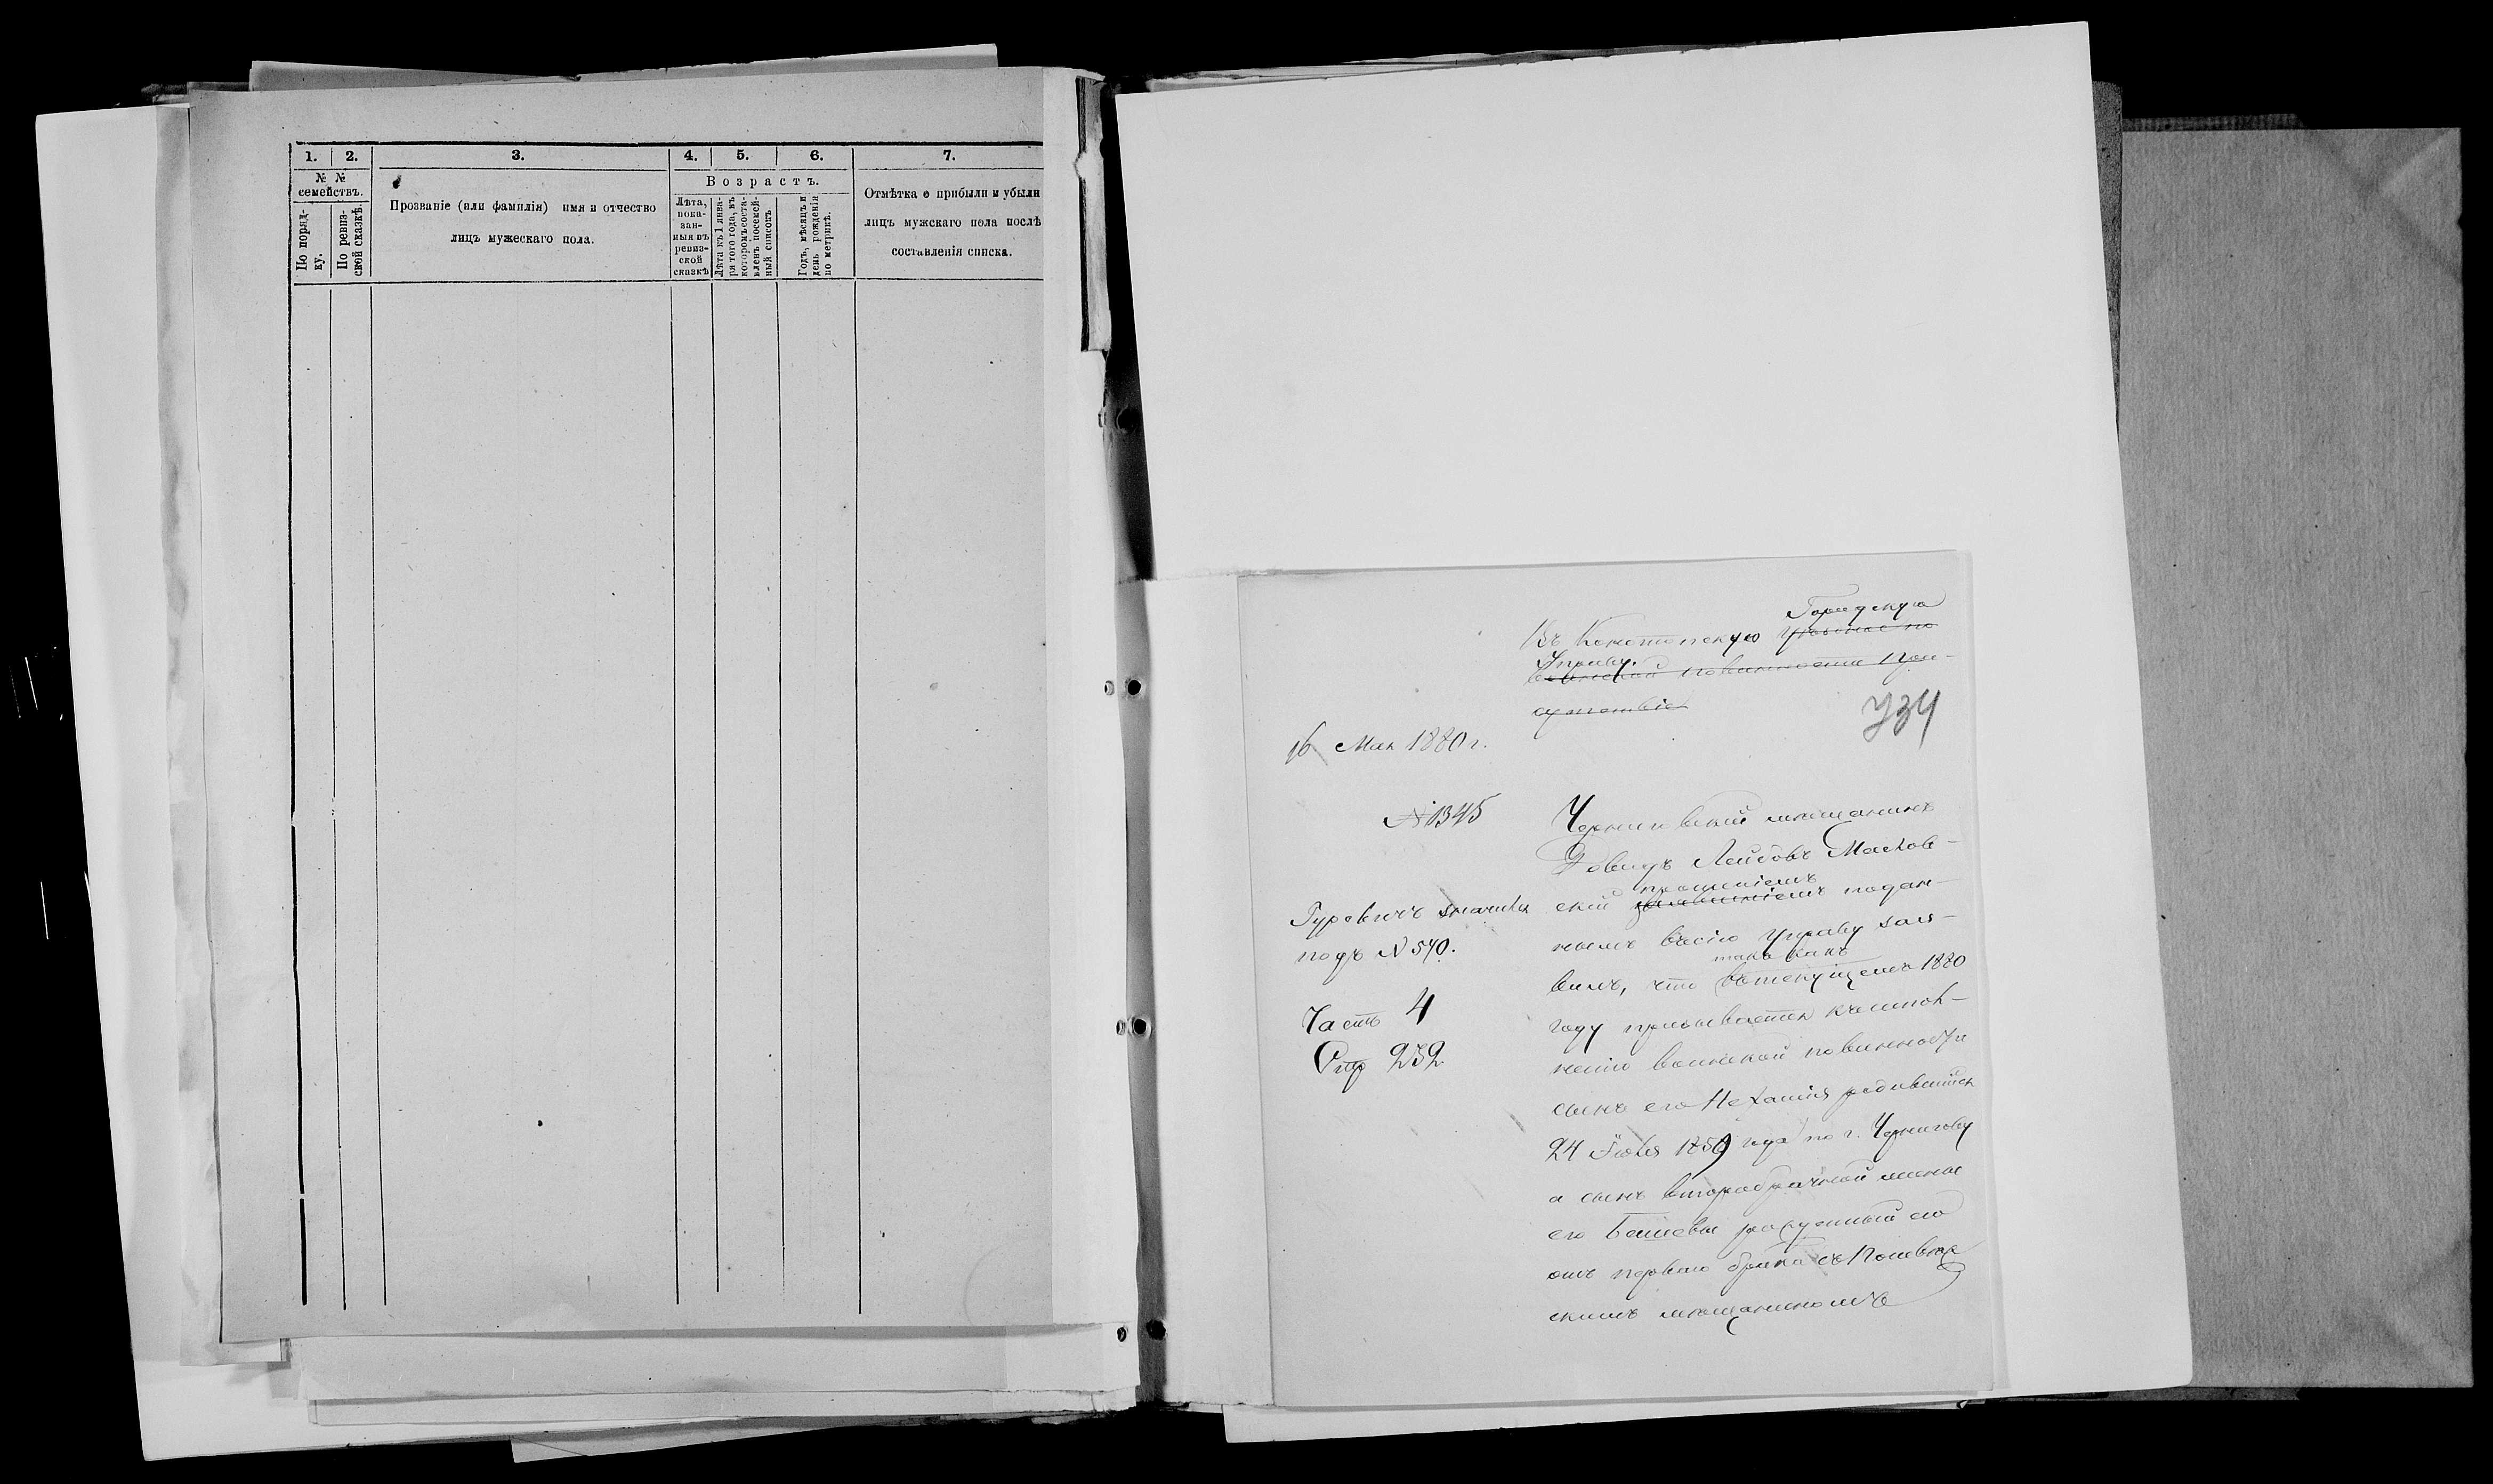 1. 2. 3. 4. 5. 6. 7.
№ №
семействъ.
По поряд-
ку.
По ревиз-
ской сказкѣ.
Прозваніе (или фамилія) имя и отчество
лицъ мужескаго пола.
Возрастъ.
Лѣта,
пока-
зан-
ныя въ
ревиз-
ской
сказкѣ
Лѣта къ 1 янва-
ря того года, въ
которомъ соста-
вленъ посемей-
ный списокъ
Годъ, мѣсяцъ и
день рожденія
по метрикѣ.
Отмѣтка о прибыли и убыли
лицъ мужскаго пола послѣ
составленія списка.
Городскую
Въ Конотопскую уѣздное по
Управу.
воинской повинности при-
сутствіе
734
16 Мая 1880 г.
№ 1345
Гуревичъ значится
подъ № 540.
Часть 4
Стр 232
Черниговскій мѣщанинъ
Довидъ Лейбовъ Маслов-
прошеніемъ
скій заявленіемъ подан-
нымъ въ сію управу заяв-
такъ какъ
вилъ, что въ текущемъ 1880
году призывается къ испол-
ненію воинской повинности
сынъ его Нехамія родившійся
24 Іюля 1859 года по г. Чернигову
а сынъ второбрачной жены
его Башевы рожденный ею
отъ перваго брака съ
скимъ мѣщаниномъ